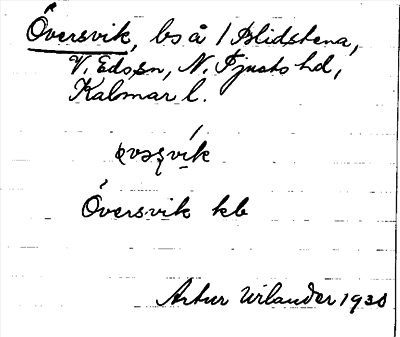 Översvik, ls å / Blidstena,
V. Eds sn, N. Tjusts hd,
Kalmar l.
Översvik kb
Artur Wilander 1930